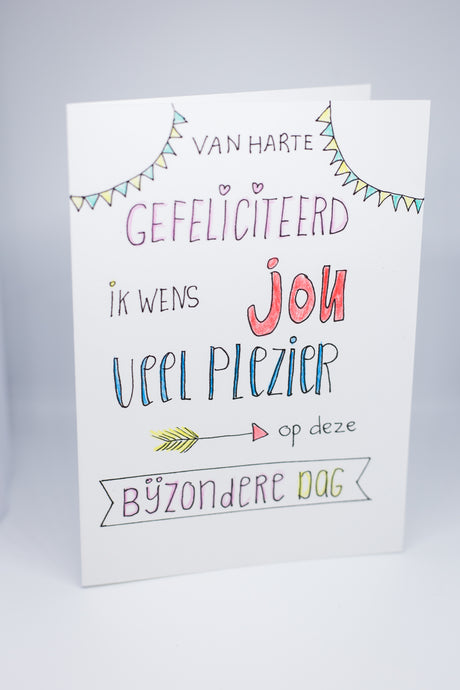 VAN HARTE
GEFELICITEERD
iK WENS jou
VEEL PLEZiER
op deze
BijZONdERE DAG